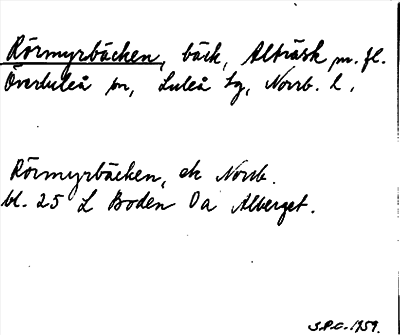 Rörmyrbäcken, bäck, Alträsk m. fl.
Överluleå sn, Luleå tg, Norrb. l.
Rörmyrbäcken, ek Norrb.
bl. 25 L Boden Oa Alberget.
S.P.C. 1959.